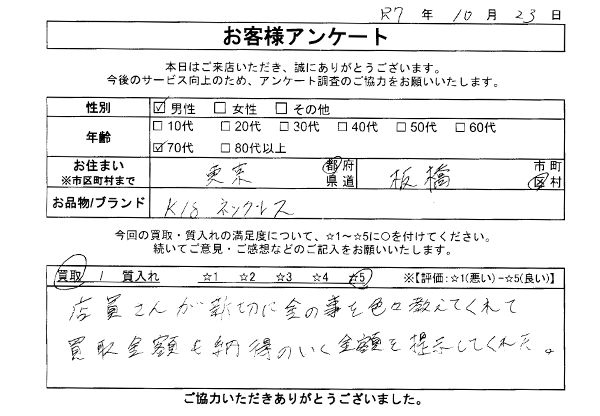 R7 年 10 月 23 日
お客様アンケート
本日はご来店いただき、誠にありがとうございます。
今後のサービス向上のため、アンケート調査のご協力をお願いいたします。
性別 ☑ 男性 □ 女性 □ その他
年齢 □ 10代 □ 20代 □ 30代 □ 40代 □ 50代 □ 60代
☑ 70代 □ 80代以上
お住まい ※市区町村まで 東京 都府県道 板橋 市町区村
お品物/ブランド K18 ネックレス
今回の買取・質入れの満足度について、☆1～☆5に○を付けてください。
続いてご意見・ご感想などのご記入をお願いいたします。
買取 / 質入れ ☆1 ☆2 ☆3 ☆4 ☆5 ※【評価:☆1(悪い)-☆5(良い)】
店員さんが親切に金の事を色々教えてくれて
買取金額も納得のいく金額を提示してくれた。
ご協力いただきありがとうございました。